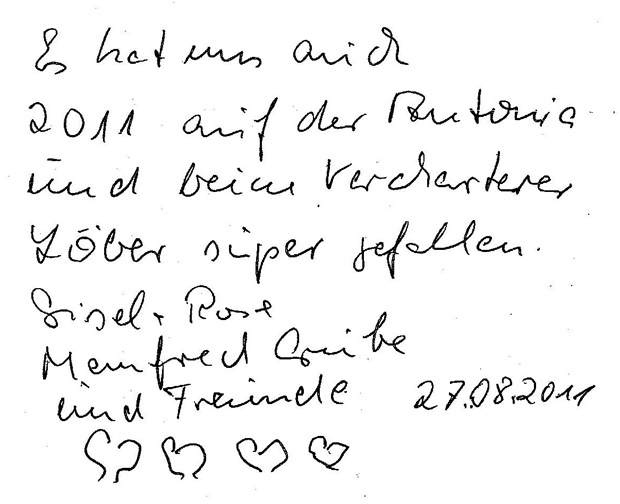 Es hat uns auch
2011 auf der Antonia
und beim Vercharterer
Löber super gefallen.
Gisel. Rose
Manfred Grube
und Freunde 27.08.2011